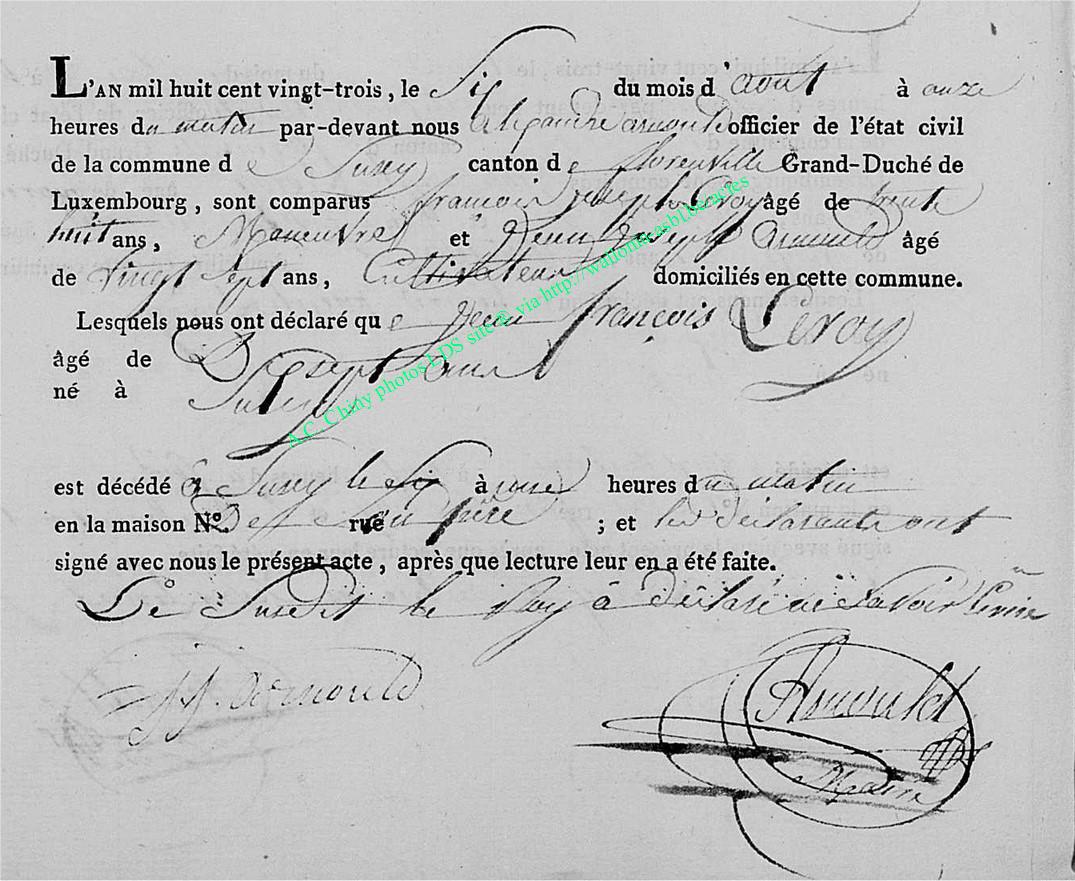 L'AN mil huit cent vingt-trois, le Six du mois d'aout à onze
heures du matin par-devant nous arnould officier de l'état civil
de la commune de Suxy canton de florenville Grand-Duché de
Luxembourg, sont comparus françois Joseph Leroy âgé de trente
huit ans, Manœuvre et Jean Joseph Arnould âgé
de vingt sept ans, Cultivateur domiciliés en cette commune.
Lesquels nous ont déclaré que Jean françois Leroy
âgé de Dixsept ans
né à Suxey
est décédé à Suxy le Six à onze heures du matin
en la maison No. de Son père rue ; et les déclarants ont
signé avec nous le présent acte, après que lecture leur en a été faite.
Le Susdit le Roy à déclaré ne Savoir
J J. Arnould
Arnould
Maire
A.C. Chiny photos LDS site® via http://wallonica.sblberacles